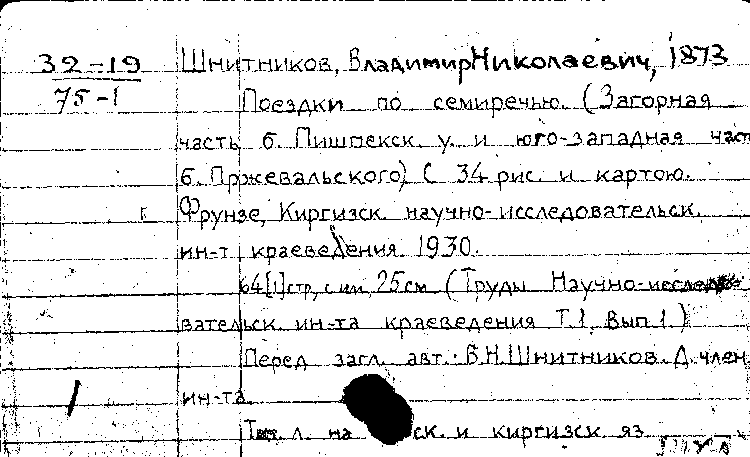 32-19 Шнитников, Владимир Николаевич, 1873
75-1 Поездки по семиречью. (Загорная
часть б. Пишпекск. у. и юго-западная част
б. Пржевальского) С 34 рис. и картою.
Фрунзе, Киргизск. научно-исследовательск.
ин-т краеведения. 1930.
64[1]стр, с илл, 25см (Труды Научно-исследо-
вательск. ин-та краеведения Т.1, Вып.1.)
Перед загл. авт.: В.Н.Шнитников. Д. член
ин-та.
Тит. л. на ск. и киргизск яз